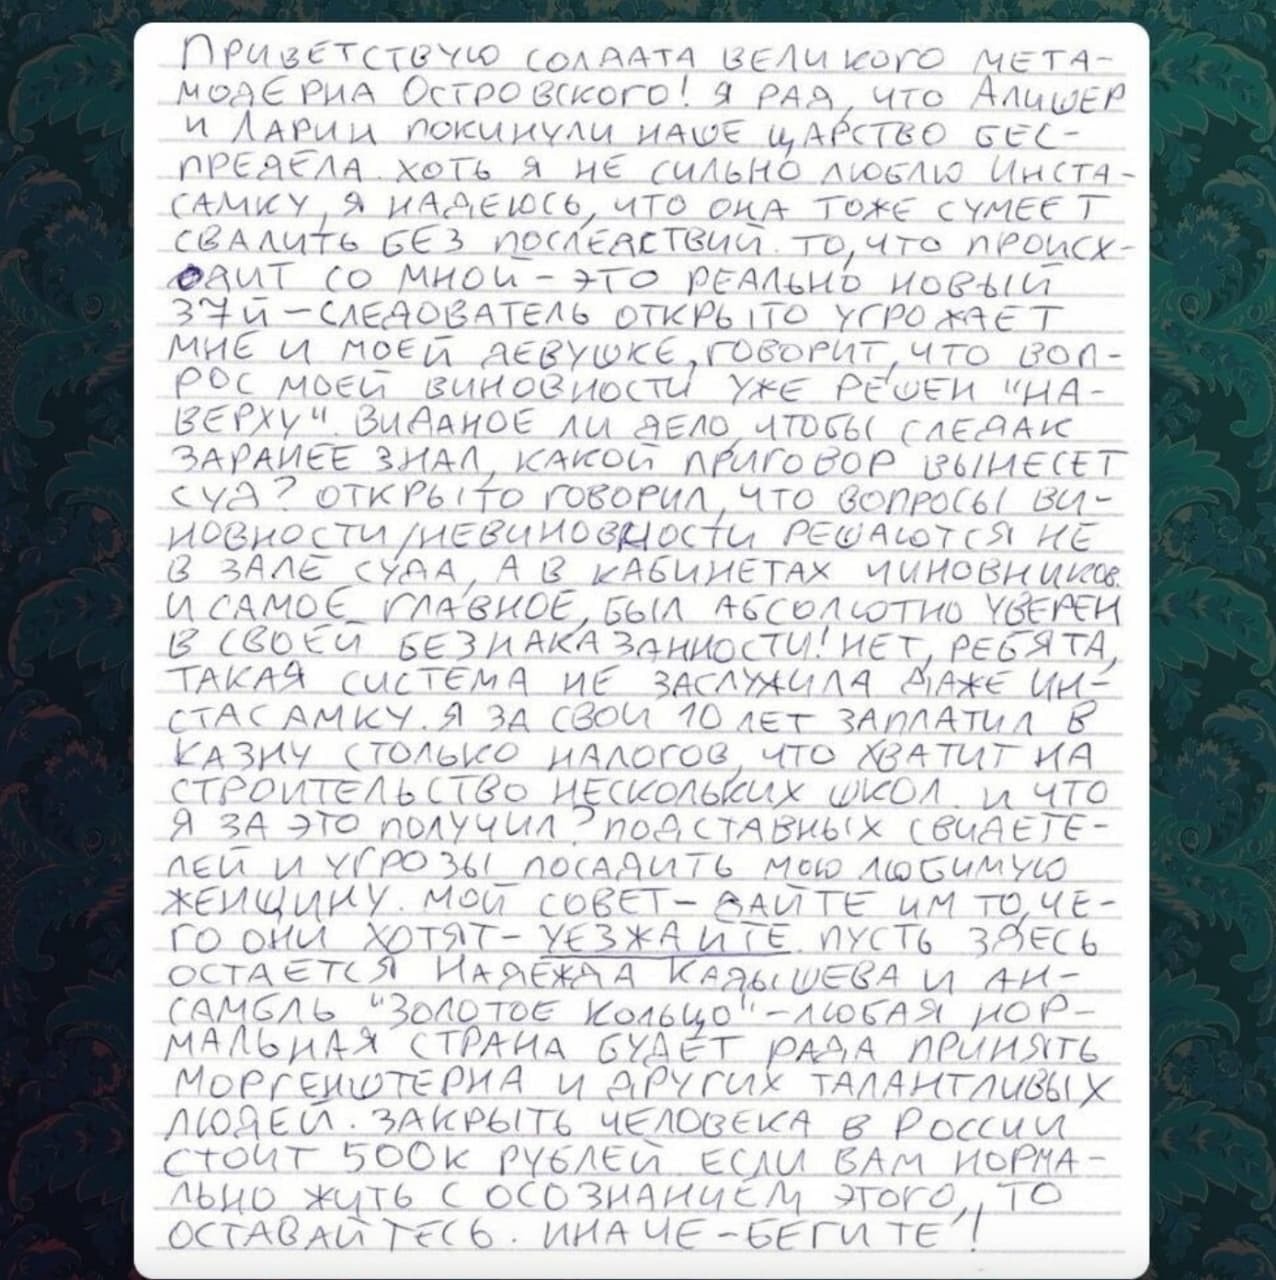 Приветствую солдата великого мета-
модерна Островского! Я рад, что Алишер
и Ларин покинули наше царство бес-
предела. Хоть я не сильно люблю Инста-
самку, я надеюсь, что она тоже сумеет
свалить без последствий. То, что происх-
одит со мной - это реально новый
37й - следователь открыто угрожает
мне и моей девушке, говорит, что воп-
рос моей виновности уже решен "на-
верху". Виданое ли дело, чтобы следак
заранее знал, какой приговор вынесет
суд? Открыто говорил, что вопросы ви-
новности/невиновности решаются не
в зале суда, а в кабинетах чиновников.
И самое главное, был абсолютно уверен
в своей безнаказанности! Нет, ребята,
такая система не заслужила даже Ин-
стасамку. Я за свои 10 лет заплатил в
казну столько налогов, что хватит на
строительство нескольких школ. И что
я за это получил? Подставных свидете-
лей и угрозы посадить мою любимую
женщину. Мой совет - дайте им то, че-
го они хотят - уезжайте. Пусть здесь
остается Надежда Кадышева и ан-
самбль "Золотое Кольцо" - любая нор-
мальная страна будет рада принять
Моргенштерна и других талантливых
людей. Закрыть человека в России
стоит 500к рублей. Если вам норма-
льно жить с осознанием этого, то
оставайтесь. Иначе - бегите!